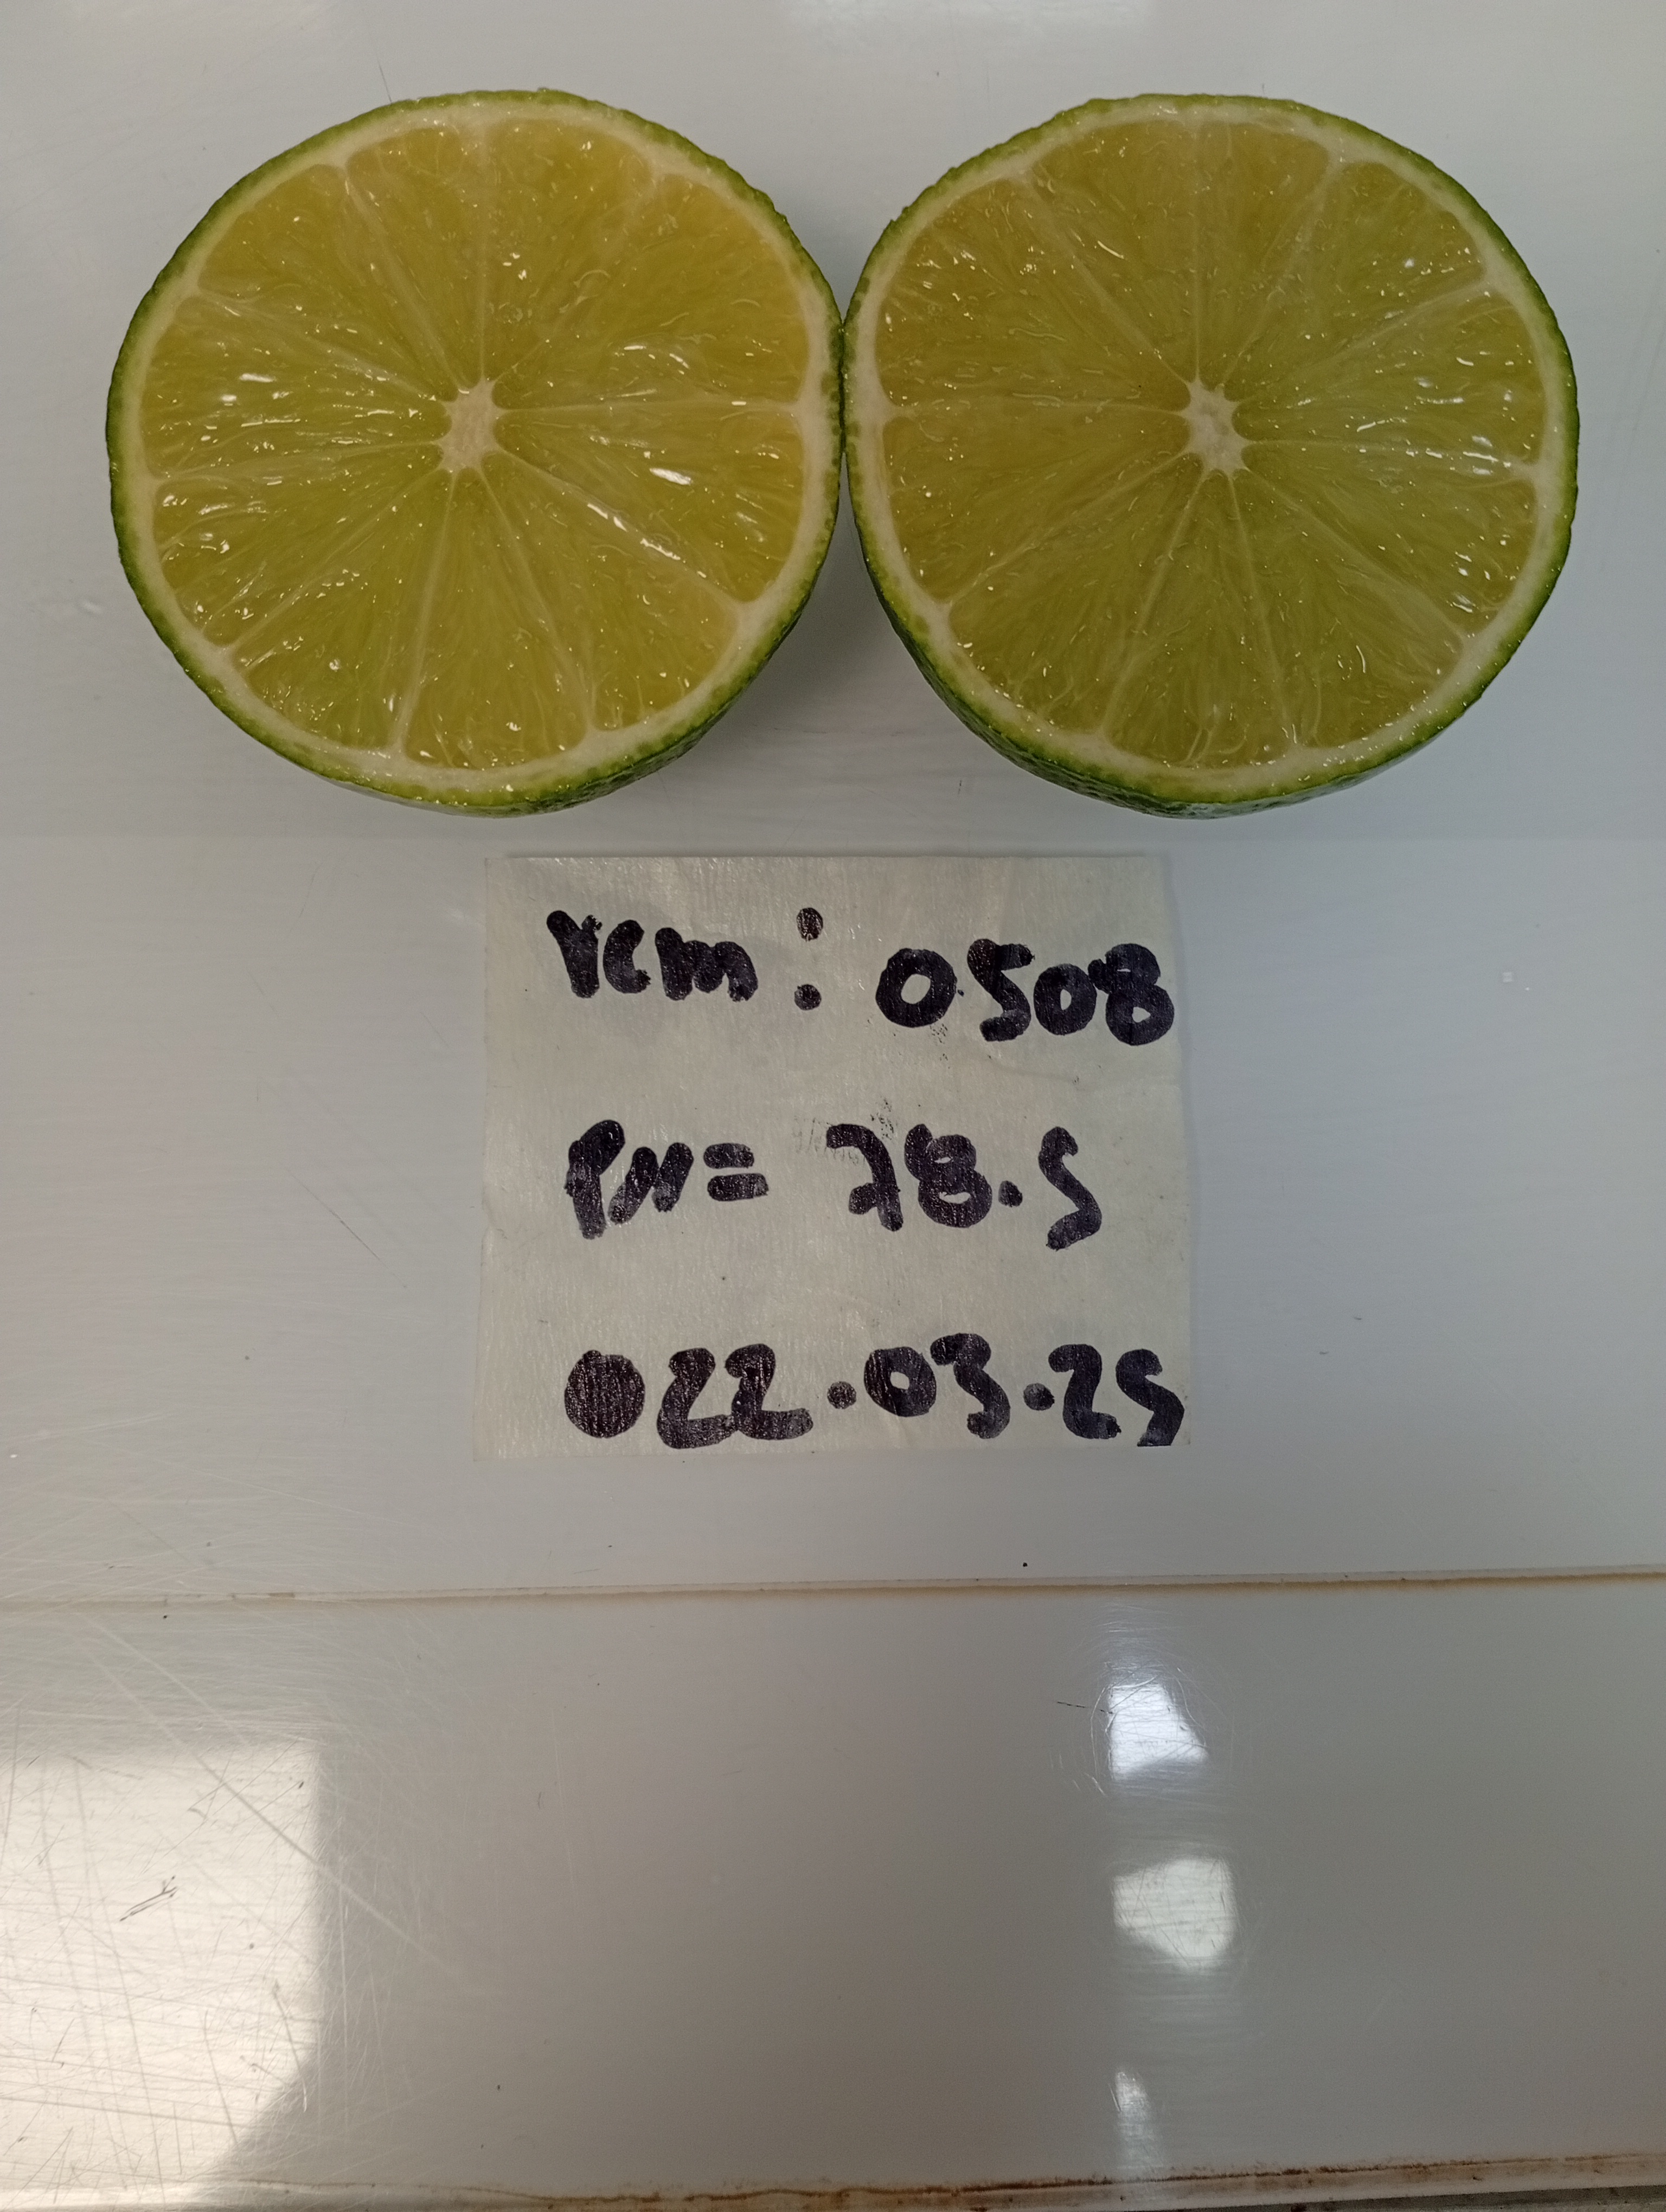 rcm: 0508
PN= 78.5
022.03.25